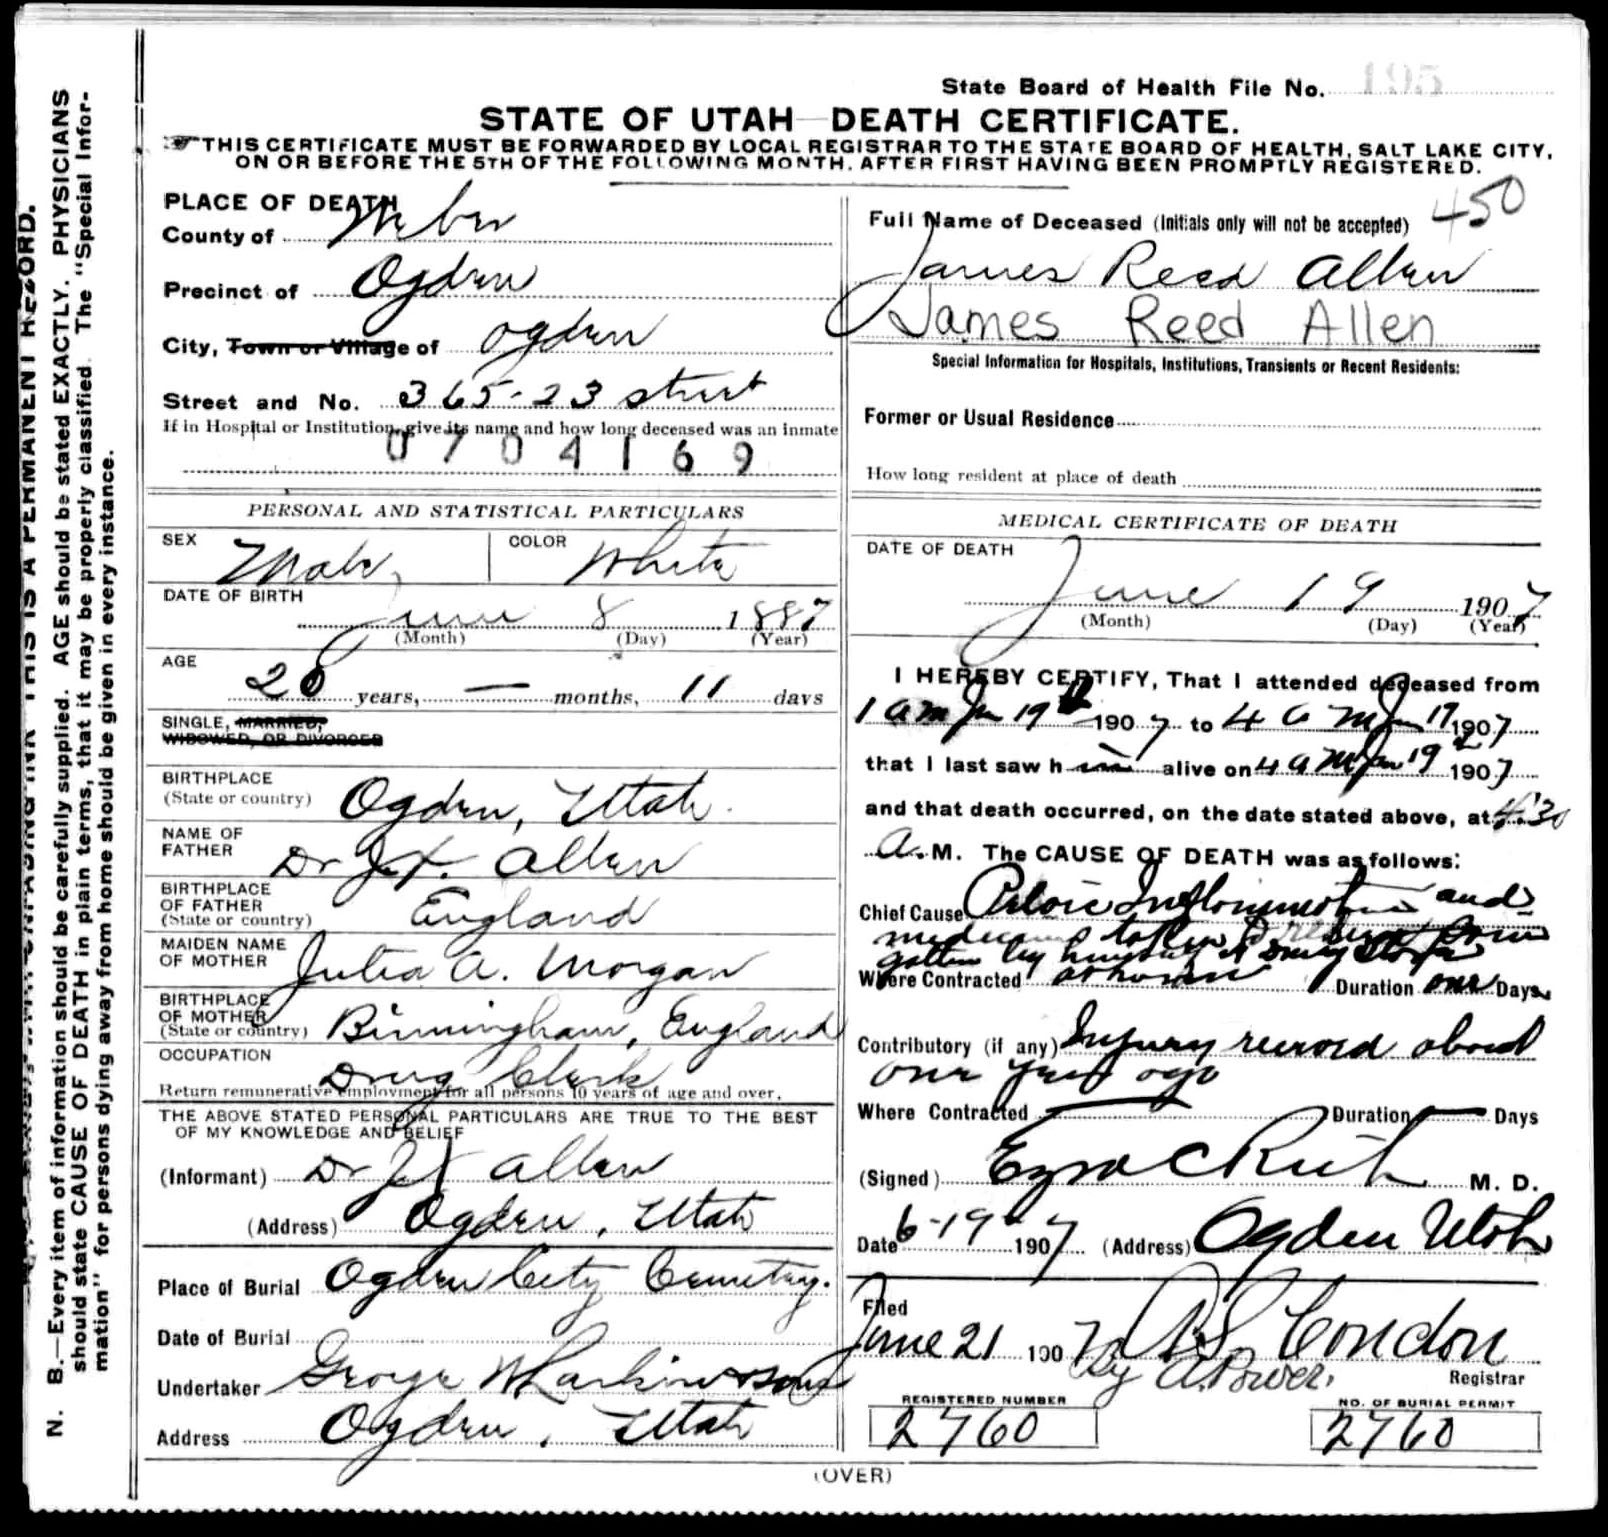 State Board of Health File No. 195
STATE OF UTAH—DEATH CERTIFICATE.
THIS CERTIFICATE MUST BE FORWARDED BY LOCAL REGISTRAR TO THE STATE BOARD OF HEALTH, SALT LAKE CITY,
ON OR BEFORE THE 5TH OF THE FOLLOWING MONTH, AFTER FIRST HAVING BEEN PROMPTLY REGISTERED.
N. B.—Every item of information should be carefully supplied. AGE should be stated EXACTLY. PHYSICIANS
should state CAUSE OF DEATH in plain terms, that it may be properly classified. The "Special Infor-
mation" for persons dying away from home should be given in every instance.
THIS IS A PERMANENT RECORD.
PLACE OF DEATH
County of Weber
Precinct of Ogden
City, Town or Village of Ogden
Street and No. 365-23 street
If in Hospital or Institution, give its name and how long deceased was an inmate
0704169
PERSONAL AND STATISTICAL PARTICULARS
SEX Male, COLOR White
DATE OF BIRTH
June 8 1887
(Month) (Day) (Year)
AGE
20 years, — months, 11 days
SINGLE, MARRIED,
WIDOWED, OR DIVORCED
BIRTHPLACE
(State or country) Ogden, Utah.
NAME OF
FATHER Dr Allen
BIRTHPLACE
OF FATHER
(State or country) England
MAIDEN NAME
OF MOTHER Julia A. Morgan
BIRTHPLACE
OF MOTHER
(State or country) Birmingham, England
OCCUPATION
Drug Clerk
Return remunerative employment for all persons 10 years of age and over.
THE ABOVE STATED PERSONAL PARTICULARS ARE TRUE TO THE BEST
OF MY KNOWLEDGE AND BELIEF
(Informant) Dr Allen
(Address) Ogden, Utah
Place of Burial Ogden City Cemetry.
Date of Burial
Undertaker George W Larkin & sons
Address Ogden, Utah
450
Full Name of Deceased (Initials only will not be accepted)
James Reed Allen
James Reed Allen
Special Information for Hospitals, Institutions, Transients or Recent Residents:
Former or Usual Residence
How long resident at place of death
MEDICAL CERTIFICATE OF DEATH
DATE OF DEATH
June 19 1907
(Month) (Day) (Year)
I HEREBY CERTIFY, That I attended deceased from
1 am Jun 19 1907 to 4 a m Jun 19 1907
that I last saw him alive on 4 a m Jun 19 1907
and that death occurred, on the date stated above, at 4:30
A. M. The CAUSE OF DEATH was as follows:
Chief Cause Pelvic Inflammation and
medicines taken to relieve pain
gotten by himself at Drug Store
Where Contracted at home Duration one Days
Contributory (if any) Injury received about
one year ago
Where Contracted — Duration — Days
(Signed) Ezra C Rich M. D.
Date 6-19- 1907 (Address) Ogden Utah
Filed
June 21 1907 Condon
By A. Power. Registrar
REGISTERED NUMBER
2760
NO. OF BURIAL PERMIT
2760
(OVER)